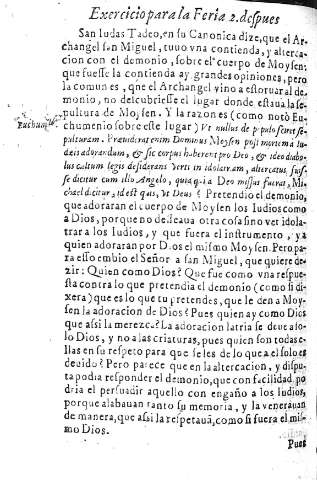 Exercicio para la Feria 2. despues
San Iudas Tadeo, en su Canonica dize, que el Ar-
changel san Miguel, tuuo vna contienda, y alterca-
cion con el demonio, sobre el cuerpo de Moysen:
que fuesse la contienda ay grandes opiniones, pero
la comun es, que el Archangel vino a estoruar al de-
monio, no descubriesse el lugar donde estaua la se-
pultura de Moysen. Y la razon es (como notò Eu-
chumenio sobre este lugar) Vt nullus de populo sciret se-
pulturam. Præuiderat enim Dominus Moysen post mortem à Iu-
dæis adorandum, & sic corpus haberent pro Deo, & ideo diabo-
lus cultum legis desiderans verti in idolatriam, altercatus fuis-
se dicitur cum illo Angelo, quia à Deo missus fuerat, Mi-
chael dicitur, id est quis, vt Deus? Pretendio el demonio,
que adoraran el cuerpo de Moysen los Iudios como
a Dios, porque no deseaua otra cosa sino ver idola-
trar a los Iudios, y que fuera el instrumento, y a
quien adoraran por Dios el mismo Moysen. Pero pa-
ra esso embio el Señor a san Miguel, que quiere de-
zir: Quien como Dios? Que fue como vna respue-
sta contra lo que pretendia el demonio (como si di-
xera) que es lo que tu pretendes, que le den a Moy-
sen la adoracion de Dios? Pues quien ay como Dios
que assi la merezca? La adoracion latria se deue a so-
lo Dios, y no a las criaturas, pues quien son todas e-
llas en su respeto para que se les dè lo que a el solo es
deuido? Pero parece que en la altercacion, y dispu-
ta podia responder el demonio, que con facilidad po
dria el persuadir aquello con engaño a los Iudios,
porque alabauan tanto su memoria, y la venerauan
de manera, que assi la respetauã, como si fuera el mis-
mo Dios.
Pues